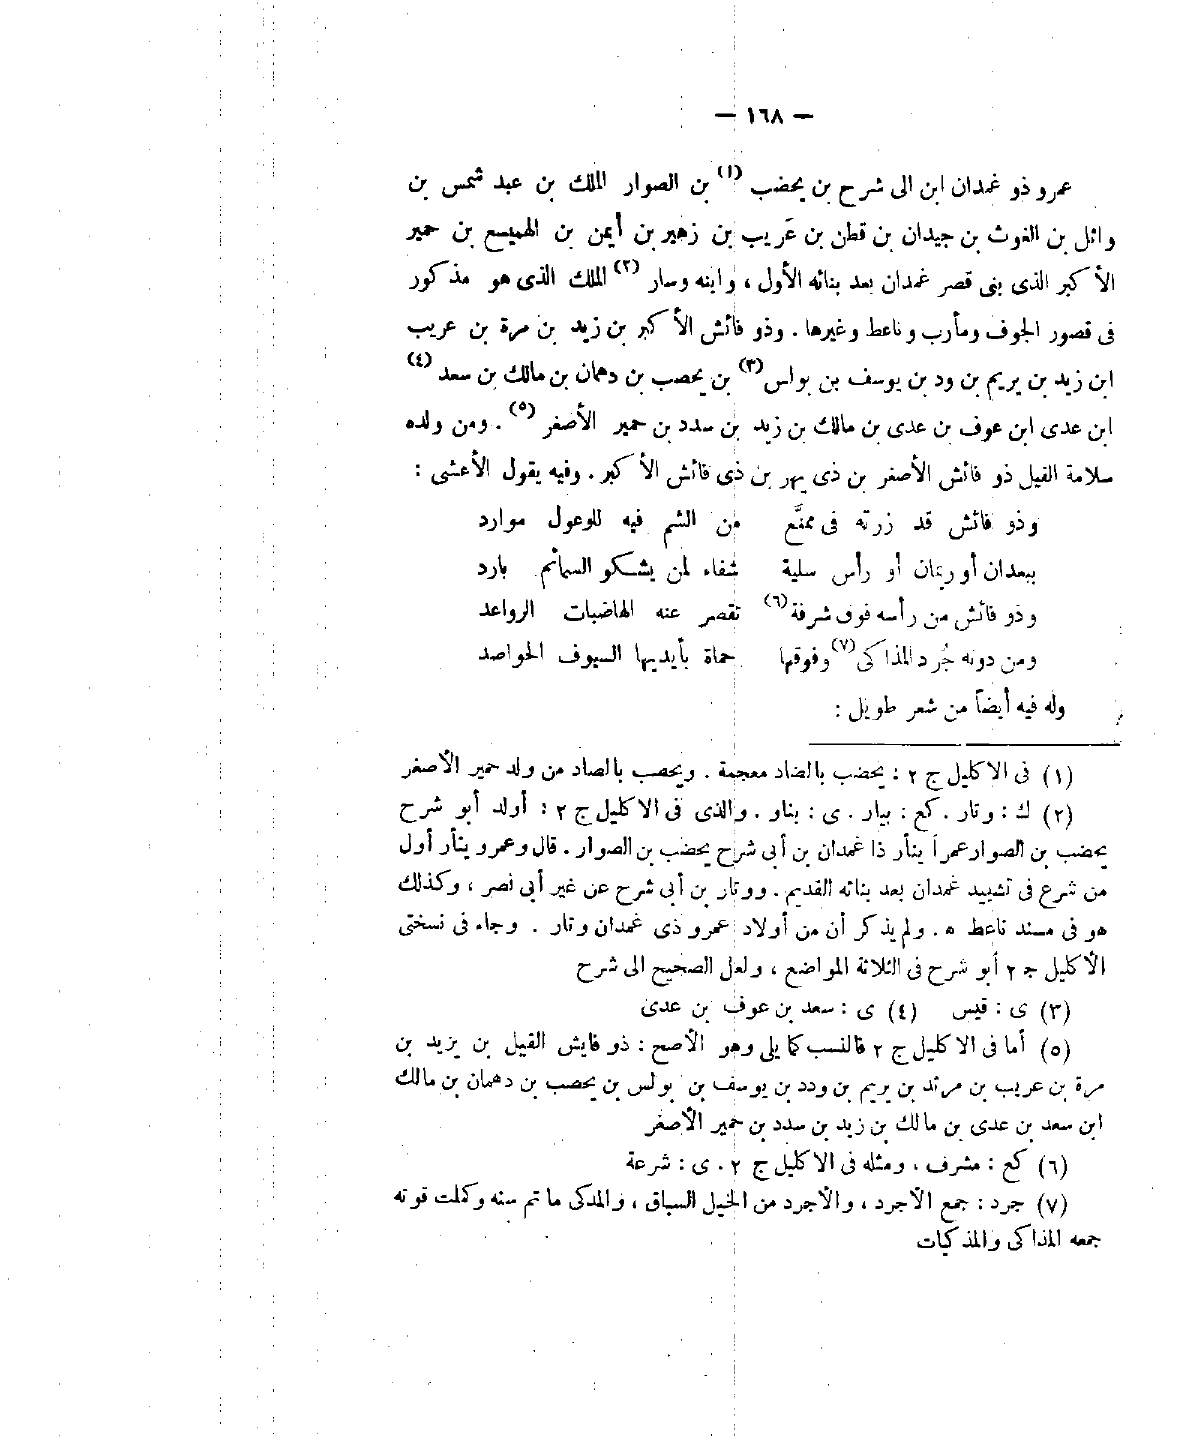 — ١٦٨ —
عمرو ذو غمدان ابن الى شرح بن يحضب (١) بن الصوار الملك بن عبد شمس بن
وائل بن الغوث بن جيدان بن قطن بن عَريب بن زهير بن أيمن بن الهميسع بن حمير
الأكبر الذى بنى قصر غمدان بعد بنائه الأول ، وابنه وسار (٢) الملك الذى هو مذكور
فى قصور الجوف ومأرب وناعط وغيرها . وذو فائش الأكبر بن زيد بن مرة بن عريب
ابن زيد بن يريم بن ود بن يوسف بن بولس (٣) بن يحصب بن دهمان بن مالك بن سعد (٤)
ابن عدى ابن عوف بن عدى بن مالك بن زيد بن سدد بن حمير الأصغر (٥) . ومن ولده
سلامة القيل ذو فائش الأصغر بن ذى يهر بن ذى فائش الأكبر . وفيه يقول الأعشى :
وذو فائش قد زرته فى ممنَّع من الشم فيه للوعول موارد
ببعدان أو ريمان أو رأس سلية شفاء لمن يشكو السمائم بارد
وذو فائش من رأسه فوق شرفة (٦) تقصر عنه الهاضبات الرواعد
ومن دونه جُرد المذاكى (٧) وفوقها حماة بأيديها السيوف الحواصد
وله فيه أيضاً من شعر طويل :
(١) فى الاكليل ج ٢ : يحضب بالضاد معجمة . ويحصب بالصاد من ولد حمير الأصغر
(٢) ك : وتار . كع : بيار . ى : بناو . والذى فى الاكليل ج ٢ : أولد أبو شرح
يحضب بن الصوار عمراً ينأر ذا غمدان بن أبى شرح يحضب بن الصوار . قال وعمرو ينأر أول
من شرع فى تشييد غمدان بعد بنائه القديم . ووتار بن أبى شرح عن غير أبى نصر ، وكذلك
هو فى مسند ناعط ه . ولم يذكر أن من أولاد عمرو ذى غمدان وتار . وجاء فى نسختى
الأكليل ج ٢ أبو شرح فى الثلاثة المواضع ، ولعل الصحيح الى شرح
(٣) ى : قيس (٤) ى : سعد بن عوف بن عدى
(٥) أما فى الاكليل ج ٢ فالنسب كما يلى وهو الأصح : ذو فايش القيل بن يزيد بن
مرة بن عريب بن مرثد بن يريم بن ودد بن يوسف بن بولس بن يحصب بن دهمان بن مالك
ابن سعد بن عدى بن مالك بن زيد بن سدد بن حمير الأصغر
(٦) كع : مشرف ، ومثله فى الاكليل ج ٢ . ى : شرعة
(٧) جرد : جمع الأجرد ، والأجرد من الخيل السباق ، والمذكى ما تم سنه وكملت قوته
جمعه المذاكى والمذكيات